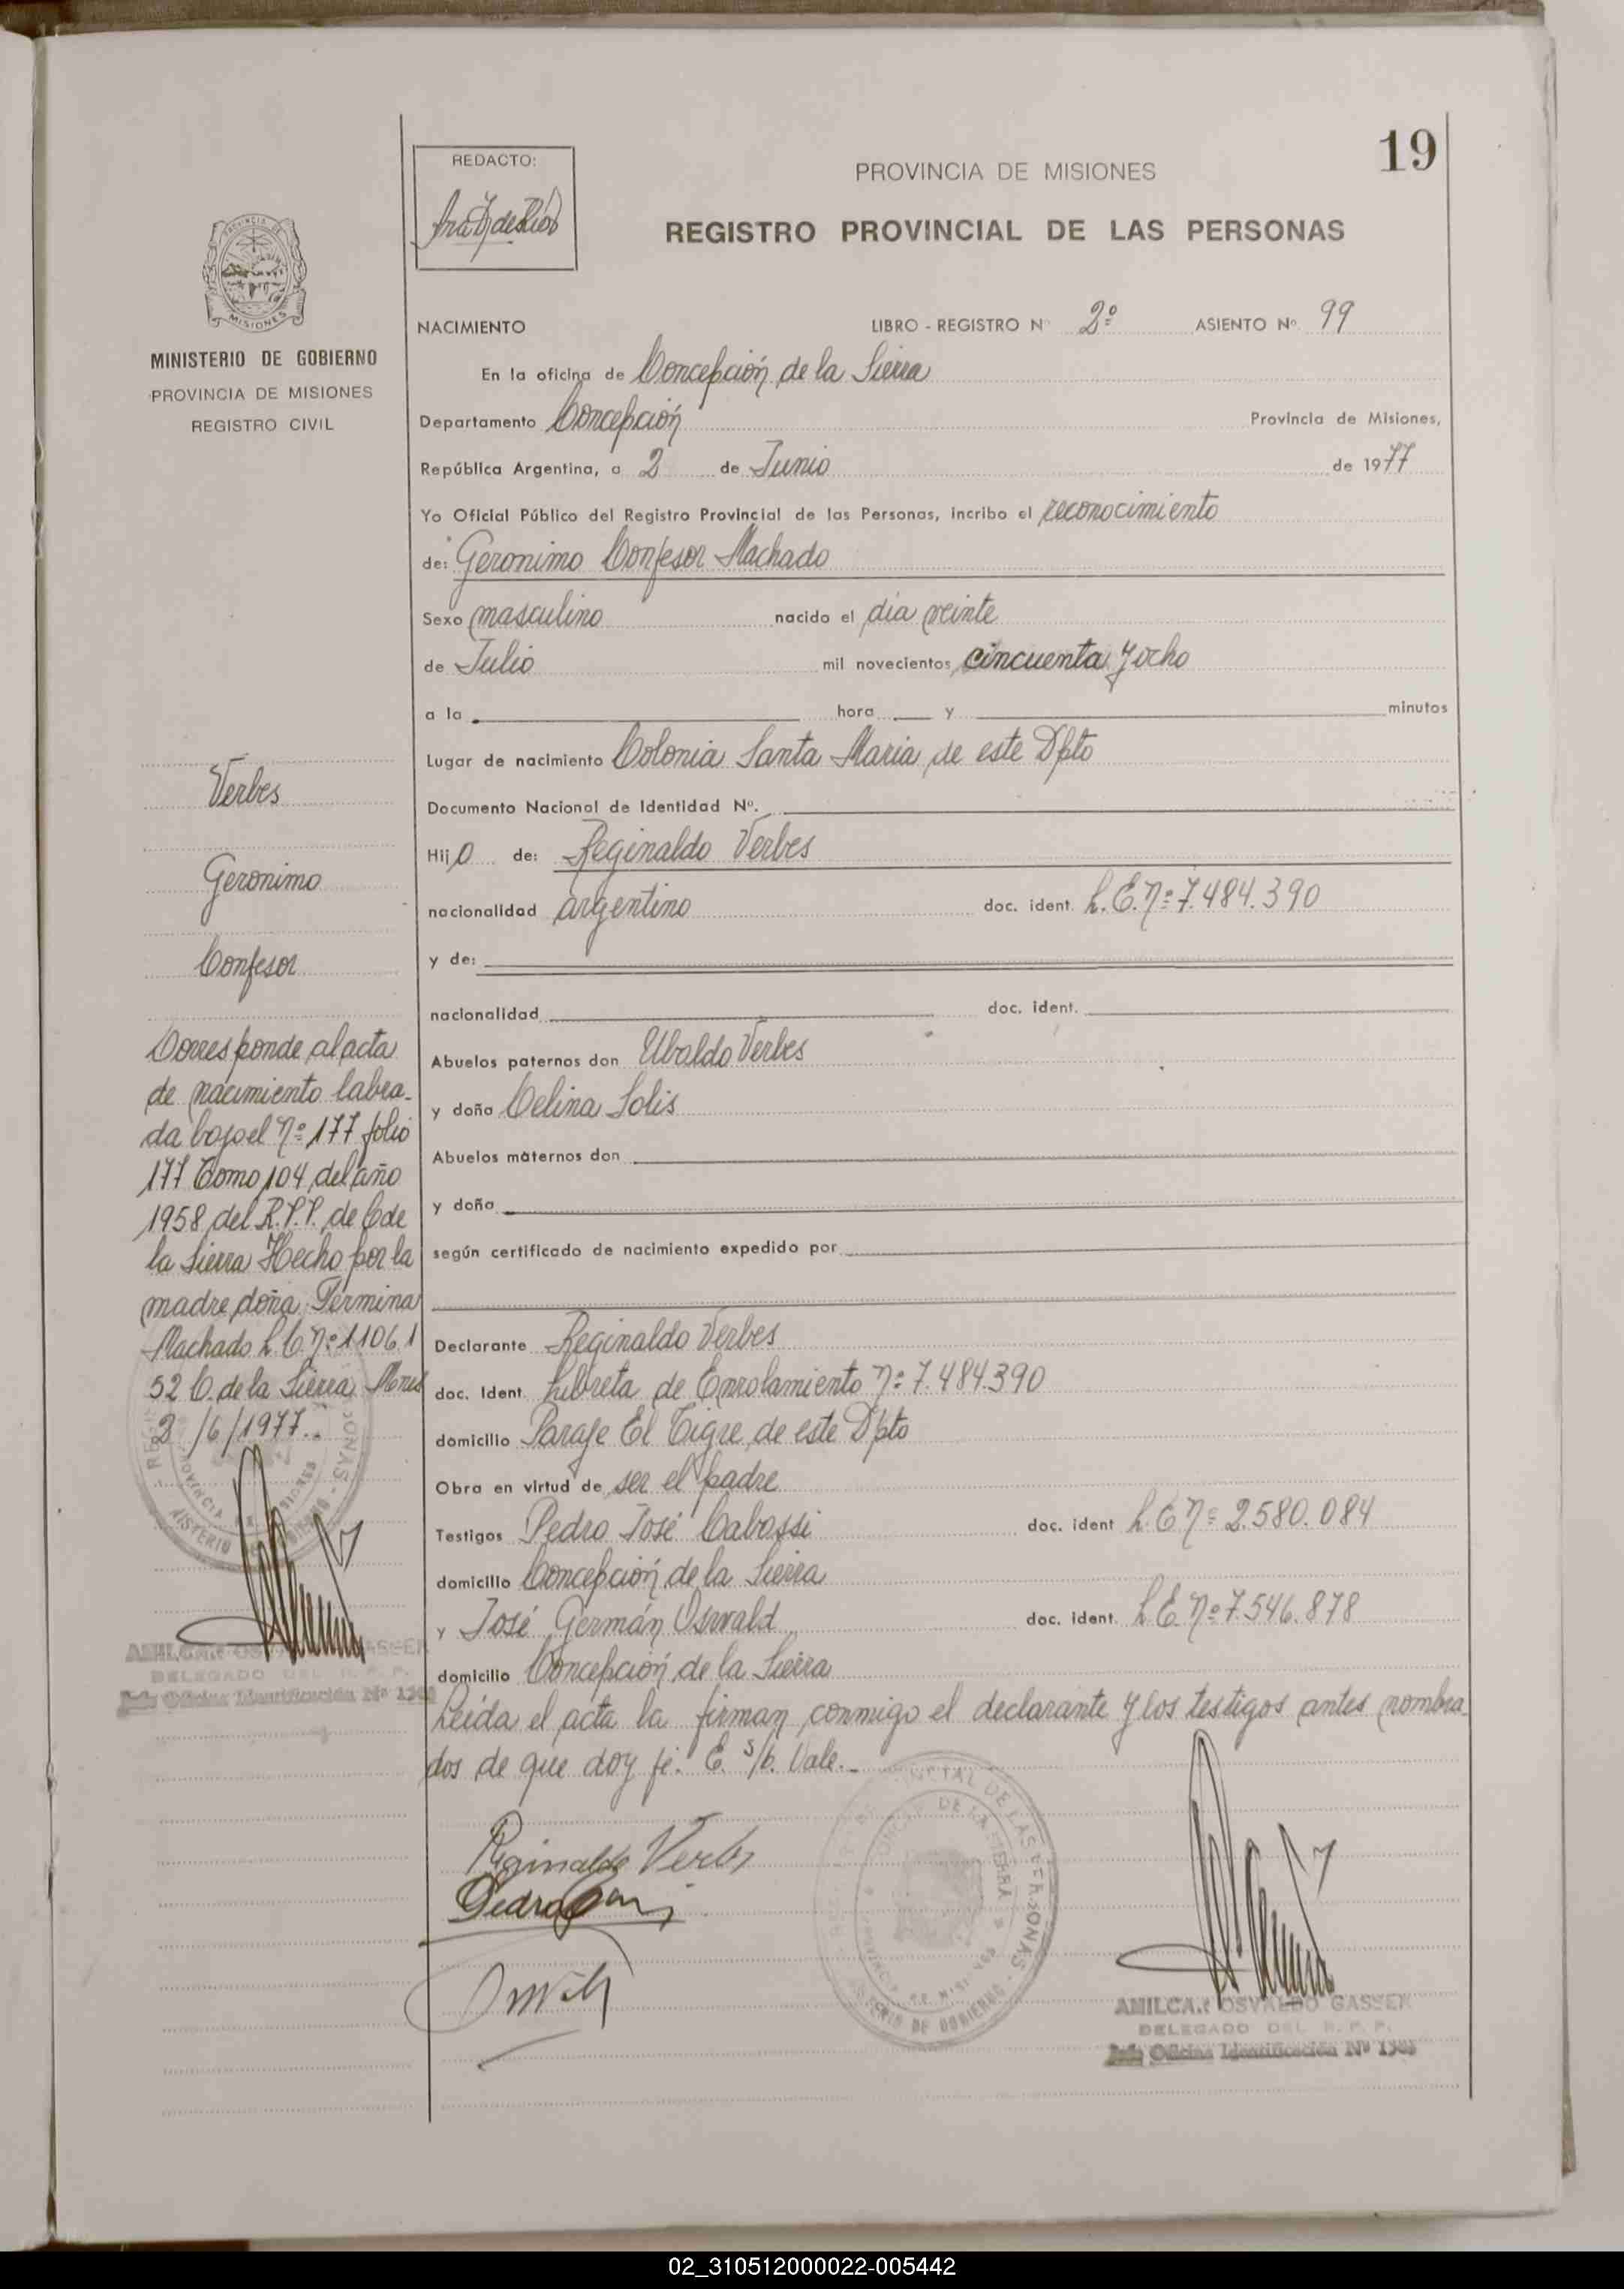 19
REDACTO:
PROVINCIA DE MISIONES
REGISTRO PROVINCIAL DE LAS PERSONAS
MISIONES
MINISTERIO DE GOBIERNO
PROVINCIA DE MISIONES
REGISTRO CIVIL
NACIMIENTO LIBRO - REGISTRO Nº 2º ASIENTO Nº 99
En la oficina de Concepción de la Sierra
Departamento Concepción Provincia de Misiones,
República Argentina, a 2 de Junio de 1977
Yo Oficial Público del Registro Provincial de las Personas, incribo el reconocimiento
de: Geronimo Confesor Machado
Sexo masculino nacido el día veinte
de Julio mil novecientos cincuenta y ocho
a la hora y minutos
Lugar de nacimiento Colonia Santa Maria de este Dpto
Documento Nacional de Identidad Nº.
Hijo de: Reginaldo Verbes
nacionalidad argentino doc. ident. L.E. Nº 7.484.390
y de:
nacionalidad doc. ident.
Abuelos paternos don Ubaldo Verbes
y doña Celina Solis
Abuelos maternos don
y doña
según certificado de nacimiento expedido por
Declarante Reginaldo Verbes
doc. Ident. Libreta de Enrolamiento Nº 7.484.390
domicilio Paraje El Tigre de este Dpto
Obra en virtud de ser el padre
Testigos Pedro José Cabassi doc. ident L.E Nº 2.580.084
domicilio Concepción de la Sierra
y José Germán Oswald doc. ident. L.E. Nº 7.546.878
domicilio Concepción de la Sierra
Leída el acta la firman conmigo el declarante y los testigos antes nombra
dos de que doy fé. E. s/b. Vale.-
Verbes
Geronimo
Confesor
Corresponde al acta
de nacimiento labra-
da bajo el Nº 177 folio
177 Tomo 104 del año
1958 del R.P.P. de C de
la Sierra Hecho por la
madre doña Fermina
Machado L.C. Nº 11061
52 C. de la Sierra Mnes
2/6/1977..
AMILCAR OSVALDO GASSER
DELEGADO DEL R. P. P.
Jefe Oficina Identificación Nº
Reginaldo Verbes
Pedro
AMILCAR OSVALDO GASSER
DELEGADO DEL R. P. P.
Jefe Oficina Identificación Nº
02_310512000022-005442